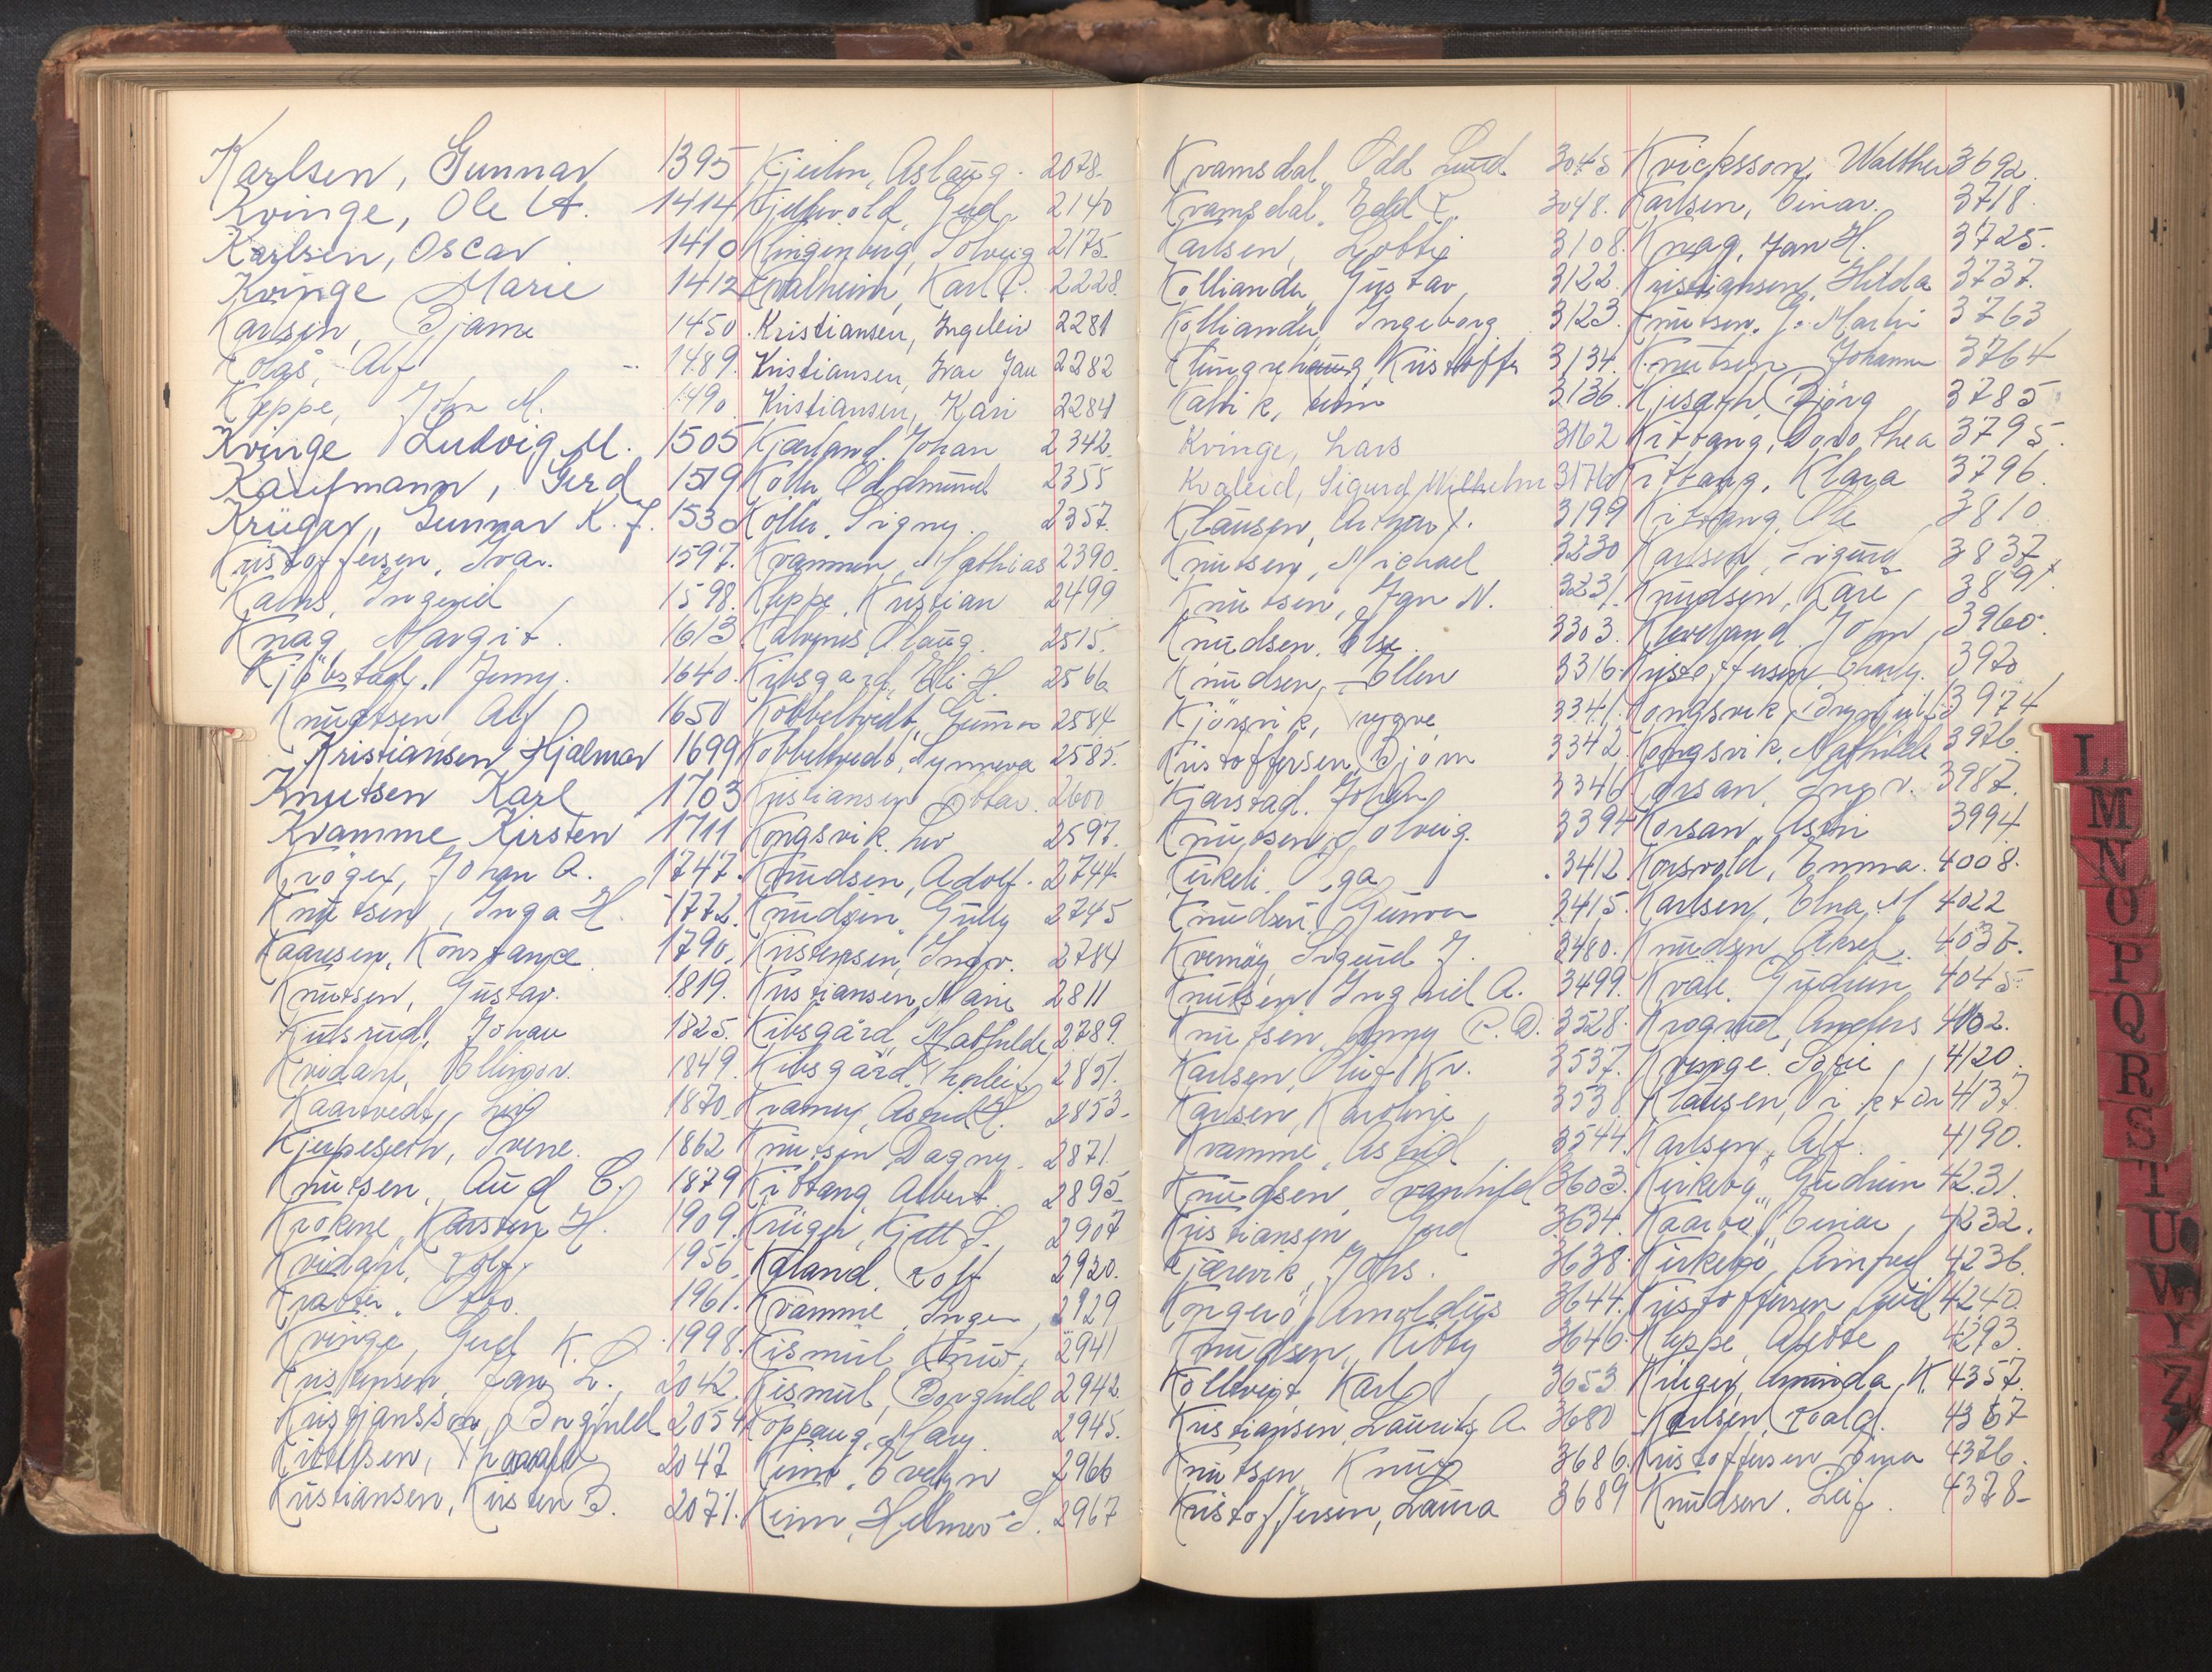 Karlsen, Gunnar 1395
Kvinge, Ole A. 1414
Karlsen, Oscar 1410
Kvinge Marie 1412
Karlsen, Bjarne 1450.
Kolås, Alf 1489.
Kleppe, John M. 1490
Kvinge Ludvig M. 1505
Kaufmann, Gerd 1519
Krüger, Gunnar K. J. 1530
Kristoffersen, Ivar. 1597.
Ingerid 1598.
Knag Margit. 1613
Jenny. 1640.
Knutsen Alf 1650
Kristiansen Hjalmar 1699
Knutsen Karl 1703
Kvamme Kirsten 1711
Krøger, Johan A. 1747.
Knutsen, Inga H. 1772.
Kaarsen, Konstance 1790.
Knutsen, Gustav. 1819.
Kulsrud, Johan 1825.
Kvidahl, Ellinor. 1849.
Kaartvedt, Leif 1870.
Kjeipeseth, Svene. 1862
Knutsen, Aud C. 1879
Krokene, Karsten H. 1909.
Kvidahl, Rolf. 1956.
Otto. 1961.
Kvinge, Gerd K. O. 1998.
Kristensen, Jan L. 2042.
Kristjansson, Borghild 2054
2047
Kristiansen, Kirsten B. 2071.
Aslaug. 2078.
2140
Klingenberg, Solveig 2175.
Kvalheim, Karl P. 2228.
Kristiansen, Ingeleiv 2281
Kristiansen, Ivar Jan 2282
Kristiansen, Kari 2284
Kjærland, Johan 2342.
Koller Oddmund 2355
Koller, Signy. 2357.
Kvammen, Mathias 2390.
Kleppe, Kristian 2499
Olaug. 2515.
Kibsgård, Elli H. 2566
Kobbeltvedt, Gunnar 2584
Kobbeltvedt, Synneva 2585.
Kristiansen Ottar. 2600
Kongsvik, Liv 2597.
Knudsen, Adolf. 2744
Knudsen, Gully 2745
Kristensen, Ingv. 2784
Kristiansen, Marie 2811
Kibsgård, Mathilde 2789.
Kibsgård, Thorleif 2851.
Kramer, Astrid H. 2853.
Knutsen Dagny. 2871.
Kitbang Albert. 2895
Krüger, Kjell S. 2907
Kaland, Rolf 2920.
Kvamme, Inger 2929
Kismul, Knut, 2941
Kismul, Borghild 2942.
Koppang, Mary. 2945.
Keim, Evelyn 2966
Keim, Helmer S. 2967
Kvamsdal, Odd 3045
Kvamsdal, Edd T. 3048.
Karlsen, Lotti 3108.
Kolliander, Gustav 3122.
Kolliander, Ingeborg. 3123.
Klungrehaug, Kristoffer 3134.
Kalvik, 3136.
Kvinge, Lars 3162
Kvaleid, Sigurd Wilhelm 3176
Klausen, Arthur T. 3199
Knutsen, Michael 3230
Knutsen, Jan N. 3231.
Knudsen, Else. 3303.
Knudsen, Ellen 3316.
Kjørsvik, Trygve 3341.
Kristoffersen, Bjørn 3342.
Kjærstad, Johan 3346.
Knutsen, Solveig. 3394
Kirkeli, Olga 3412.
Knudsen, Gunvor 3415.
Sigurd J. 3480.
Knutsen Ingrid A. 3499.
Knutsen, Anny C. D. 3528.
Karlsen, Oluf Kr. 3537.
Karlsen, Karoline 3538
Kvamme, Astrid 3544.
Knudsen, Svanhild 3603.
Kristiansen Gerd 3634.
Kjærvik, Johs. 3638.
Kongerø, Arnoldus 3644.
Knudsen, Kitty 3646.
Kolltveit, Karl 3653
Kristiansen, Laurits A. 3680
Knutsen, Knut 3686.
Kristoffersen, Laura 3689
Kvicksson, Walther 3692.
Karlsen, Einar. 3718.
Knag, Jan H. 3725.
Kristiansen, Hilda 3737.
Knutsen, G. Martin 3763
Knutsen Johanne 3764
Bjørg 3785
Kitbang, Dorothea 3795.
Kitbang, Klara 3796.
Kitbang, Ole 3810
Karlsen, Sigurd 3837
Knudsen, Kåre 3891.
Kleveland, John 3960.
Kristoffersen Charly. 3970
Kongsvik, Brynjulf 3974
Kongsvik, Mathilde 3976.
Korsan, Ingv. 3987.
Korsan, Astri 3994
Korsvold, Emma. 4008.
Karlsen, Elna M 4022
Knudsen, Aksel. 4037.
Kvale, Gudrun 4045.
Krogrud, Anders 4102.
Kvinge, Sofie 4120.
Klausen, Viktor 4137
Karlsen, Alf. 4190.
Kirkebø, Gudrun 4231.
Einar 4232.
Kirkebø, Amfred 4236.
Kristoffersen, 4240.
Kleppe, Alette 4293.
Krüger, Aminda K. 4357.
Karlsen, Roald. 4367
Kristoffersen 4376.
Knudsen. Leif. 4378-
L
M
N
O
P
Q
R
S
T
U
W
Y
Z